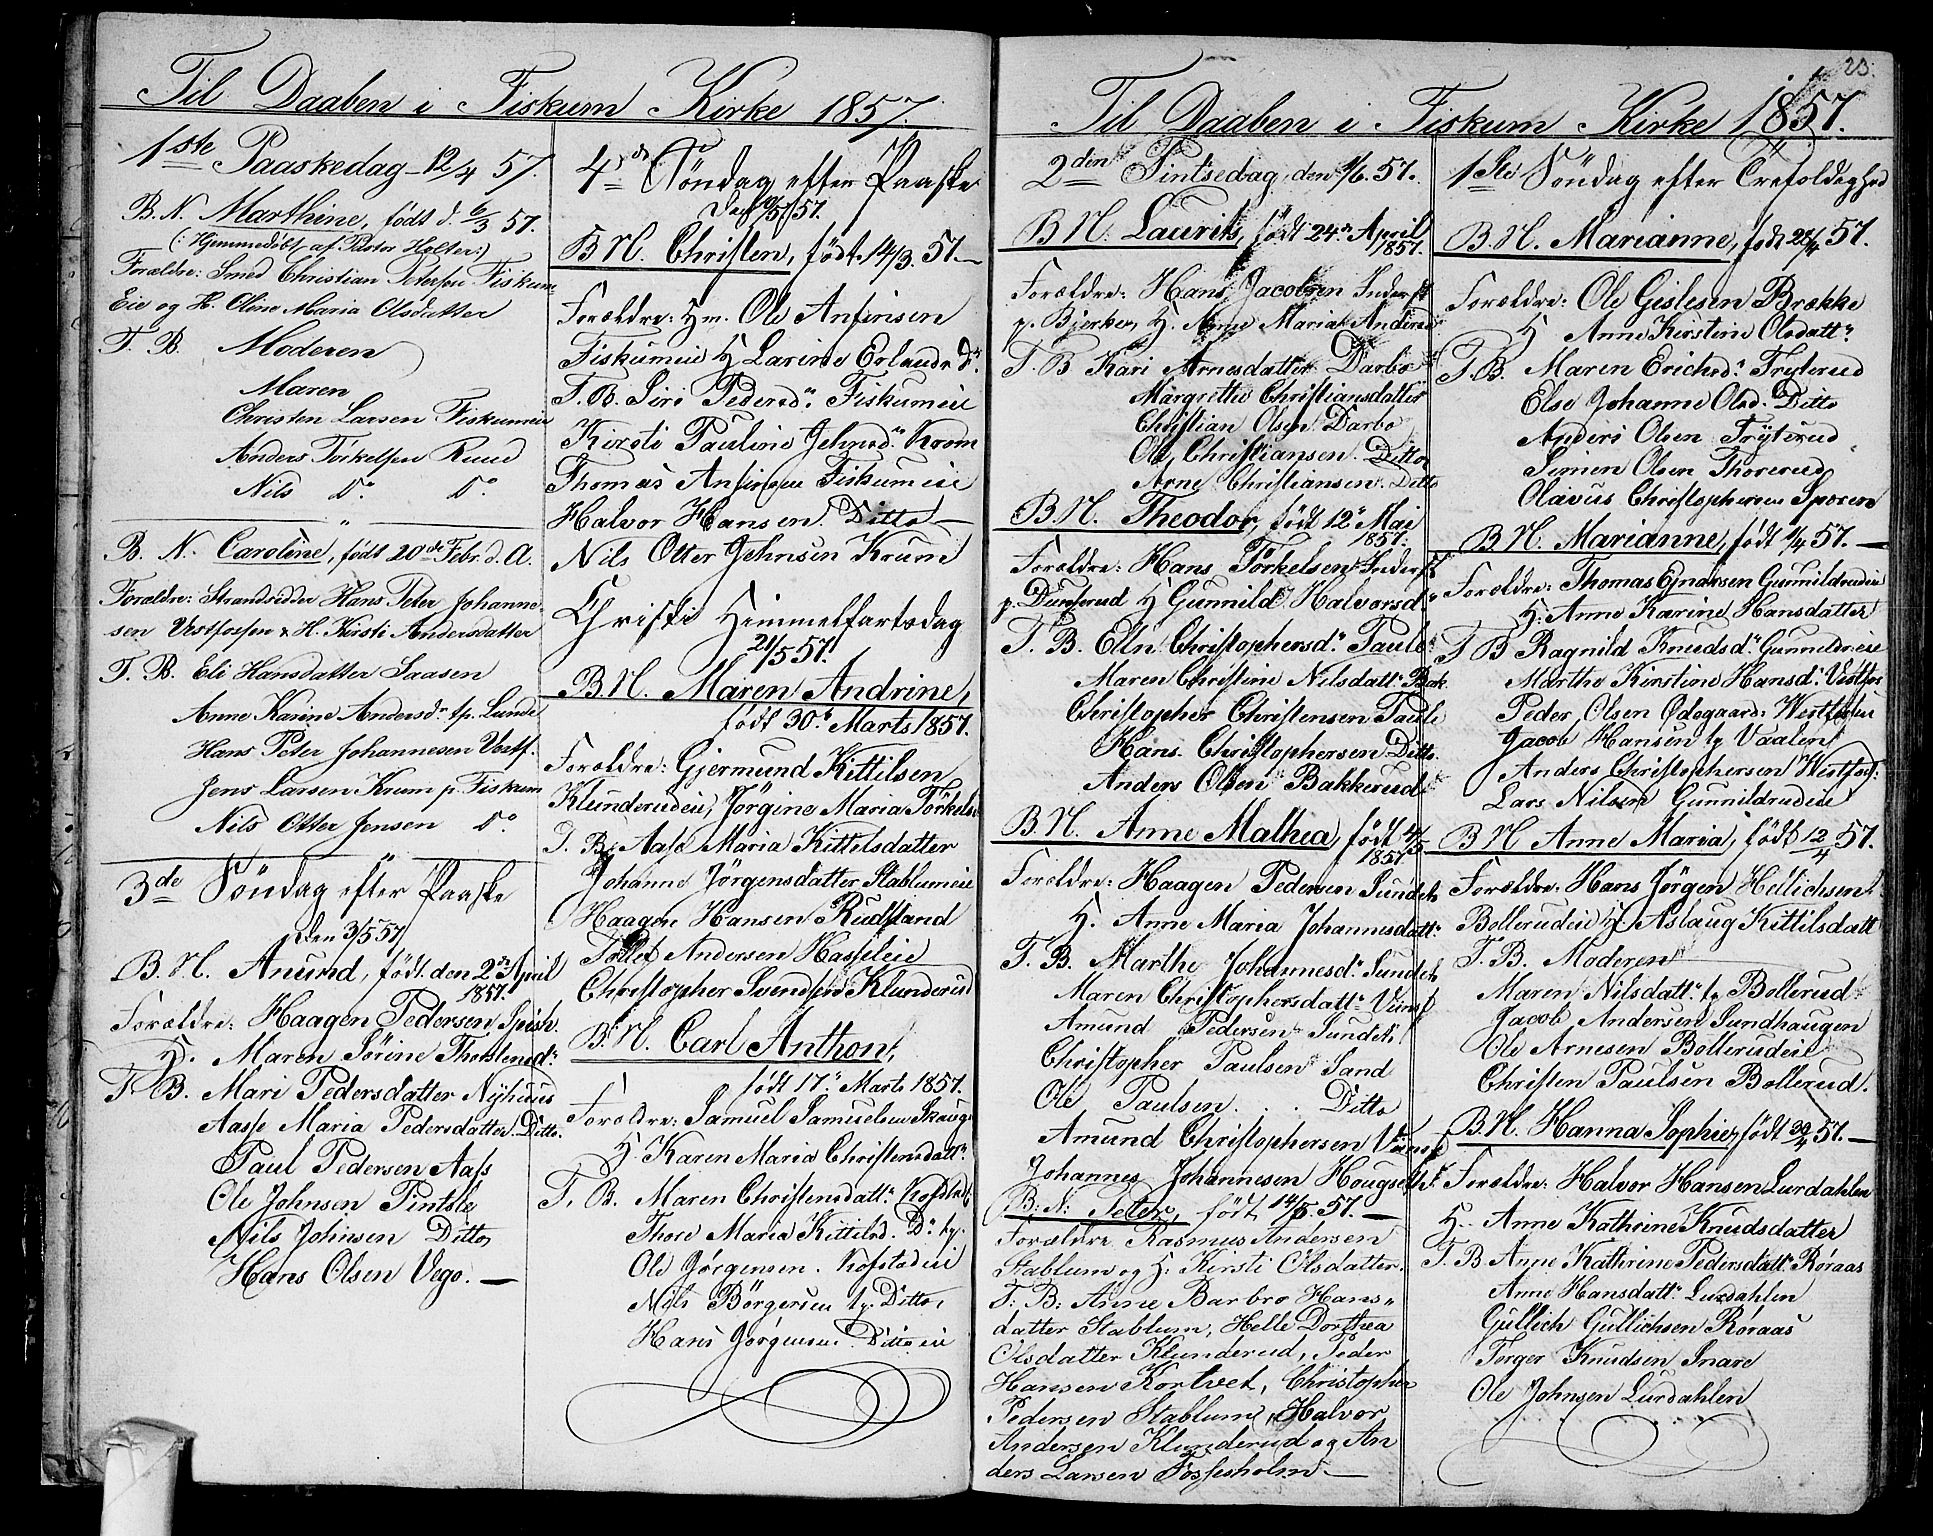 Til Daaben i Fiskum Kirke 1857.
1ste Paaskedag 12/4 57.
B. N. Marthine, födt d. 6/3 57.
(: Hjemmedöbt af Pastor Holter :)
Forældre: Smed Christian Petersen Fiskum-
Eie og H. Oline Maria Olsdatter
F. B. Moderen
Maren
Christen Larsen Fiskumeie
Anders Törkelsen Ruud
Nils do do
B. N. Caroline, födt 20de Febr. d. A.
Forældre: Strandsidder Hans Peter Johanne-
sen Vestfossen & H. Kirsti Andersdatter
F. B. Eli Hansdatter Saasen
Anne Karine Andersdr tp. Lunde
Hans Peter Johannesen Vestf.
Jens Larsen Krum p. Fiskum
Nils Otter Jensen do
3de Söndag efter Paaske
den 3/5 57
B. N. Anund, födt den 2n April
1857.
Forældre: Haagen Pedersen Spish.
H. Maren Sörine Thorstensdr
F. B. Mari Pedersdatter Nÿhuus
Aasse Maria Pedersdatter Ditto.
Paul Pedersen Aass
Ole Johnsen Pintsle
Nils Johnsen Ditto
Hans Olsen Vego.
4de Söndag efter Paaske
den 10/5 57.
B N. Christen, födt 14/3. 57.
Forældre: Hm. Ole Anfinsen
Fiskumeie H Larine Erlandsdr.
F. B. Siri Pedersdr Fiskumeie
Kirsti Pauline Jehnsdr Krom
Thomas Anfinsen Fiskumeie
Halvor Hansen. Ditto
Nils Otter Jehnsen Krum
Christi Himmelfartsdag
21/5 57.
B. N. Maren Andrine,
födt 30te Marts 1857.
Forældre: Gjermund Kittilsen
Klunderudeie, Jörgine Maria Törkelsd
F. B. Aasse Maria Kittelsdatter
Johanne Jörgensdatter Stablumeie
Haagen Hansen Rudstand
Tollef Andersen Hasseleie
Christopher Svendsen Klunderud
B. N. Carl Anthon,
födt 17. Marts 1857.
Forældre: Samuel Samuelsen Skauge
H. Karen Maria Christensdattr
F. B. Maren Christensdattr Kofstad
Thore Maria Kittilsd. Do ty.
Ole Jörgensen. Kofstadeie
Nils Börgersen ty. Ditto,
Hans Jörgensen. Ditto eie
23.
Til Daaben i Fiskum Kirke 1857.
2den Pintsedag, den 1/6. 57.
B N. Laurits, födt 24de April
1857.
Forældre: Hans Jacobsen Inderst
p. Bjerke, H. Anne Maria Andersd
F. B Kari Arnesdatter Darbo
Margrethe Christiansdatter
Christian Olsen Darbo
Ole Christiansen. Ditto
Arne Christiansen. Ditto
B. N. Theodor, födt 12te Mai
1857.
Forældre: Hans Törkelsen Inderst
p. Dunserud H Gunnild Halvorsdr
F. B. Elln Christophersdr Paule
Maren Christine Nilsdattr Bak.
Christopher Christensen Paule
Hans Christophersen Ditto
Anders Olsen Bakkerud
B. N. Anne Mathea, födt 4/5
1857
Forældre: Haagen Pedersen Sundet
H. Anne Maria Johannesdattr
F. B. Marthe Johannesdr Sundet
Maren Christophersdattr
Amund Pedersen Sundet
Christopher Paulsen Sand
Ole Paulsen. . . Ditto
Amund Christophersen
Johannes Johannesen Hougseth
B: N: Peter, födt 14/5. 57.
Forældre Rasmus Andersen
Stablum og H: Kirsti Olsdatter.
F: B: Anne Barbro Hans-
datter Stablum, Helle Dorthea
Olsdatter Klunderud, Peder
Hansen Kortvet, Christopher
Pedersen Stablum, Halvor
Andersen Klunderud og An
ders Larsen Fossesholm.
1ste Söndag efter Trefoldighed
B. N. Marianne, födt 22/4 57.
Forældre: Ole Gislesen Brække
H Anne Kirstine Olsdattr
F. B. Maren Erichsdr Fryterud
Else Johanne Olsd. Ditto
Anders Olsen Fryterud
Simen Olsen Thorerud
Olavus Christophersen Sporen
B. N. Marianne, födt 1/4 57.
Forældre: Thomas Ejnarsen Gunnildrudeie
H. Anne Karine Hansdatter
F B Ragnild Knudsdr Gunnildrudeie
Marthe Kirstine Hansdr Vestfos
Peder Olsen Ödegaard: Westfossen
Jacob Hansen ty Vaalen
Anders Christophersen Westfos:
Lars Nilsen Gunnildrudeie
B N Anne Maria, födt 12/4 57.
Forældre: Hans Jörgen Hellichsen
Bollerudeie H. Aslaug Kittilsdatt
F. B. Moderen
Maren Nilsdattr ty Bollerud
Jacob Andersen Sundhaugen
Ole Arnesen Bollerudeie
Christen Paulsen Bollerud.
B. N. Hanna Sophie, födt 30/4 57.
Forældre: Halvor Hansen Lurdahlen
H. Anne Kathrine Knudsdatter
F. B. Anne Kathrine Pedersdattr Röraas
Anne Hansdattr Lurdahlen
Gullich Gullichsen Röraas
Torger Knudsen Snare
Ole Johnsen Lurdahlen